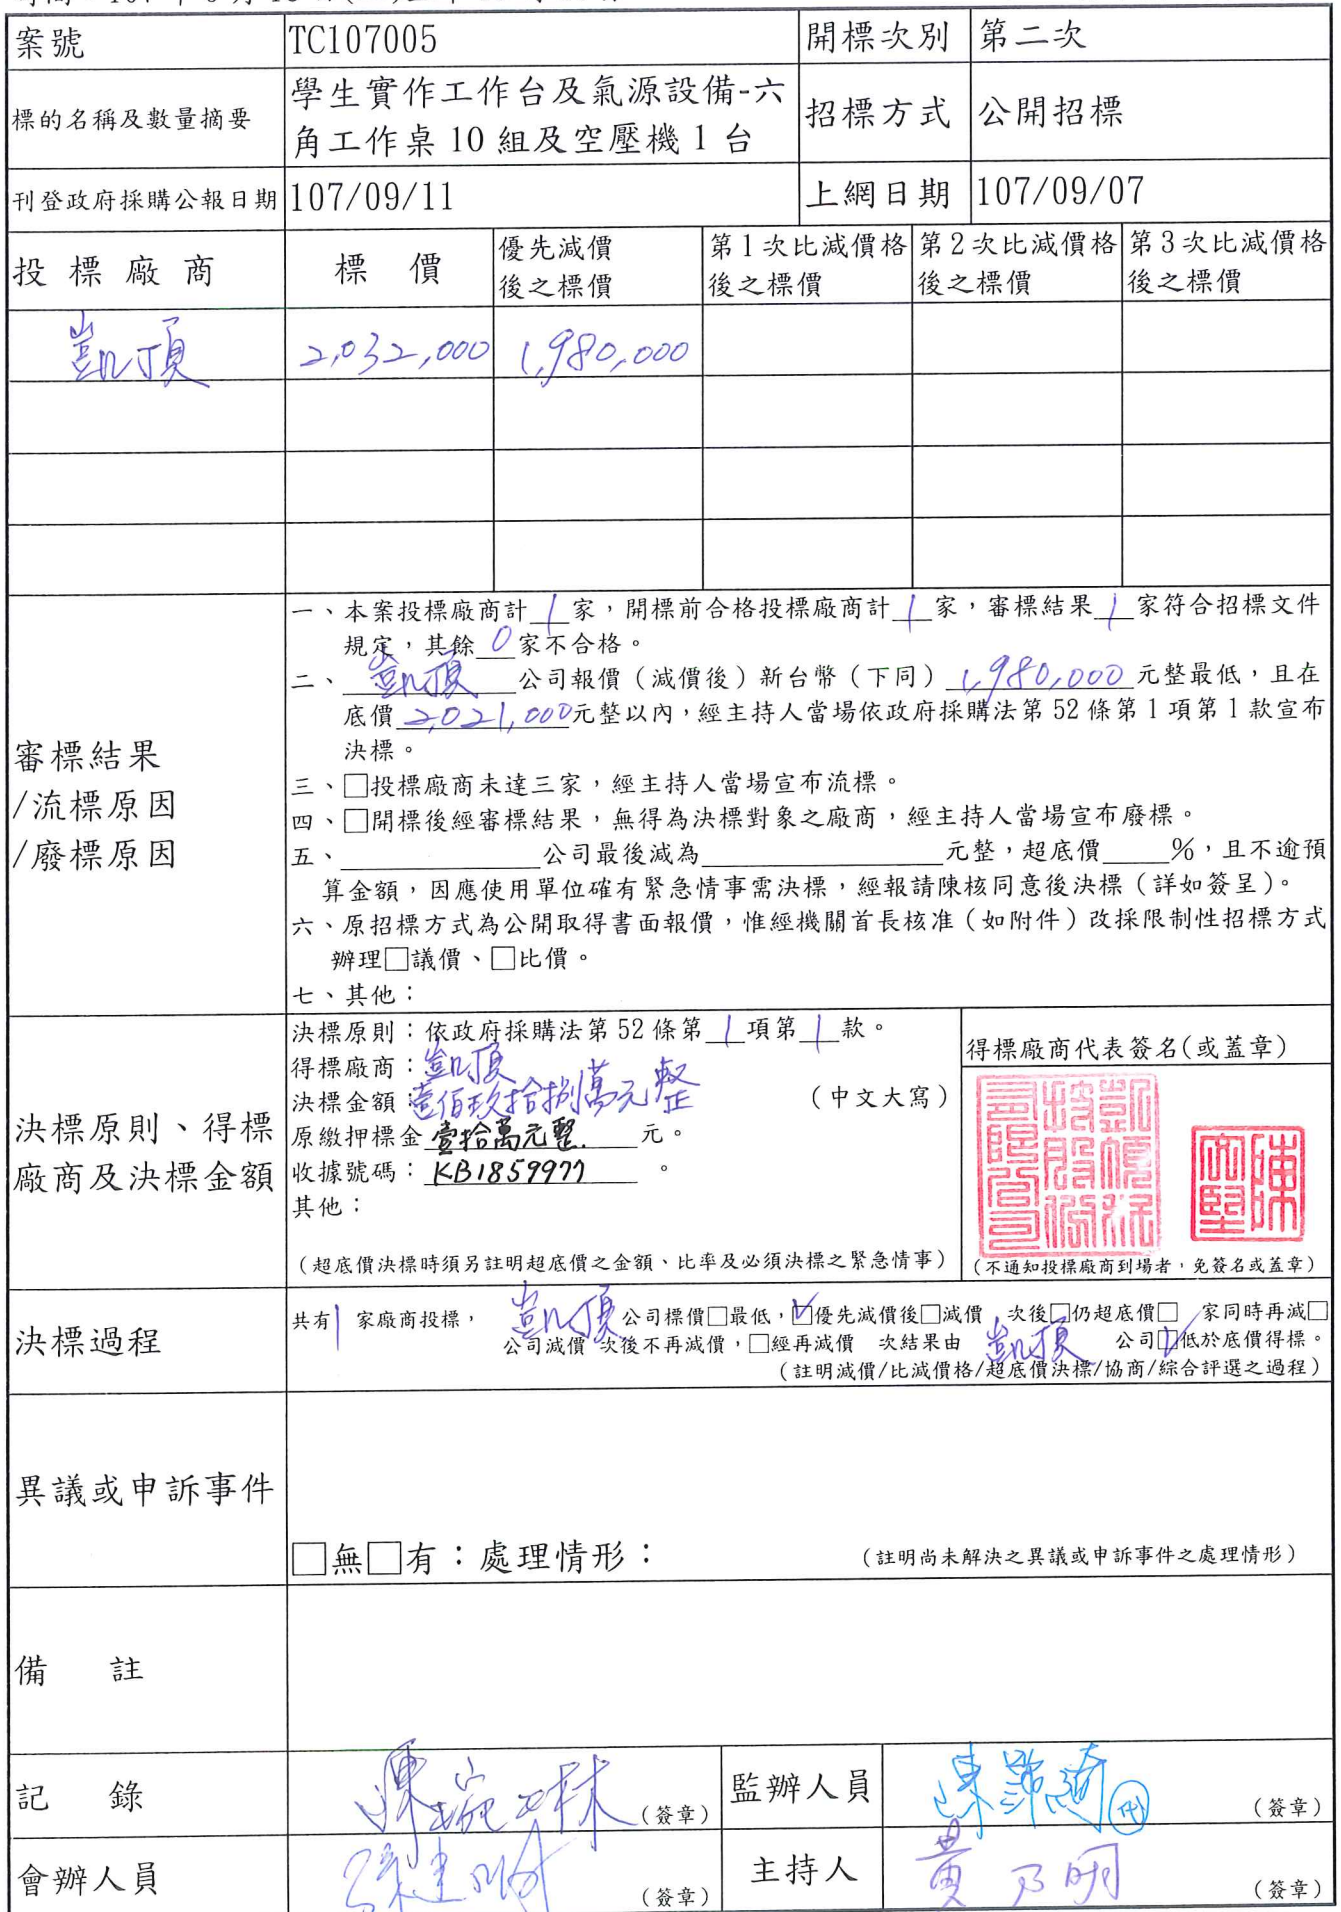 案號 TC107005 開標次別 第二次
標的名稱及數量摘要 學生實作工作台及氣源設備-六
角工作桌 10 組及空壓機 1 台 招標方式 公開招標
刊登政府採購公報日期 107/09/11 上網日期 107/09/07
投標廠商 標價 優先減價
後之標價 第1次比減價格
後之標價 第2次比減價格
後之標價 第3次比減價格
後之標價
凱頂 2,032,000 1,980,000
審標結果
/流標原因
/廢標原因
一、本案投標廠商計 1 家，開標前合格投標廠商計 1 家，審標結果 1 家符合招標文件
規定，其餘 0 家不合格。
二、凱頂公司報價（減價後）新台幣（下同）1,980,000 元整最低，且在
底價 2,021,000 元整以內，經主持人當場依政府採購法第 52 條第 1 項第 1 款宣布
決標。
三、□投標廠商未達三家，經主持人當場宣布流標。
四、□開標後經審標結果，無得為決標對象之廠商，經主持人當場宣布廢標。
五、____公司最後減為____元整，超底價____%，且不逾預
算金額，因應使用單位確有緊急情事需決標，經報請陳核同意後決標（詳如簽呈）。
六、原招標方式為公開取得書面報價，惟經機關首長核准（如附件）改採限制性招標方式
辦理□議價、□比價。
七、其他：
決標原則、得標
廠商及決標金額
決標原則：依政府採購法第 52 條第 1 項第 1 款。
得標廠商：凱頂
決標金額：壹佰玖拾捌萬元整 （中文大寫）
原繳押標金 壹拾萬元整. 元。
收據號碼：KB1859977 。
其他：
（超底價決標時須另註明超底價之金額、比率及必須決標之緊急情事）
得標廠商代表簽名(或蓋章)
（不通知投標廠商到場者，免簽名或蓋章）
決標過程
共有 1 家廠商投標， 凱頂 公司標價□最低，☑優先減價後□減價 次後□仍超底價□ 家同時再減□
公司減價 次後不再減價，□經再減價 次結果由 凱頂 公司☑低於底價得標。
（註明減價/比減價格/超底價決標/協商/綜合評選之過程）
異議或申訴事件
□無□有：處理情形： （註明尚未解決之異議或申訴事件之處理情形）
備 註
記 錄 （簽章） 監辦人員 （簽章）
會辦人員 （簽章） 主持人 黃乃明 （簽章）